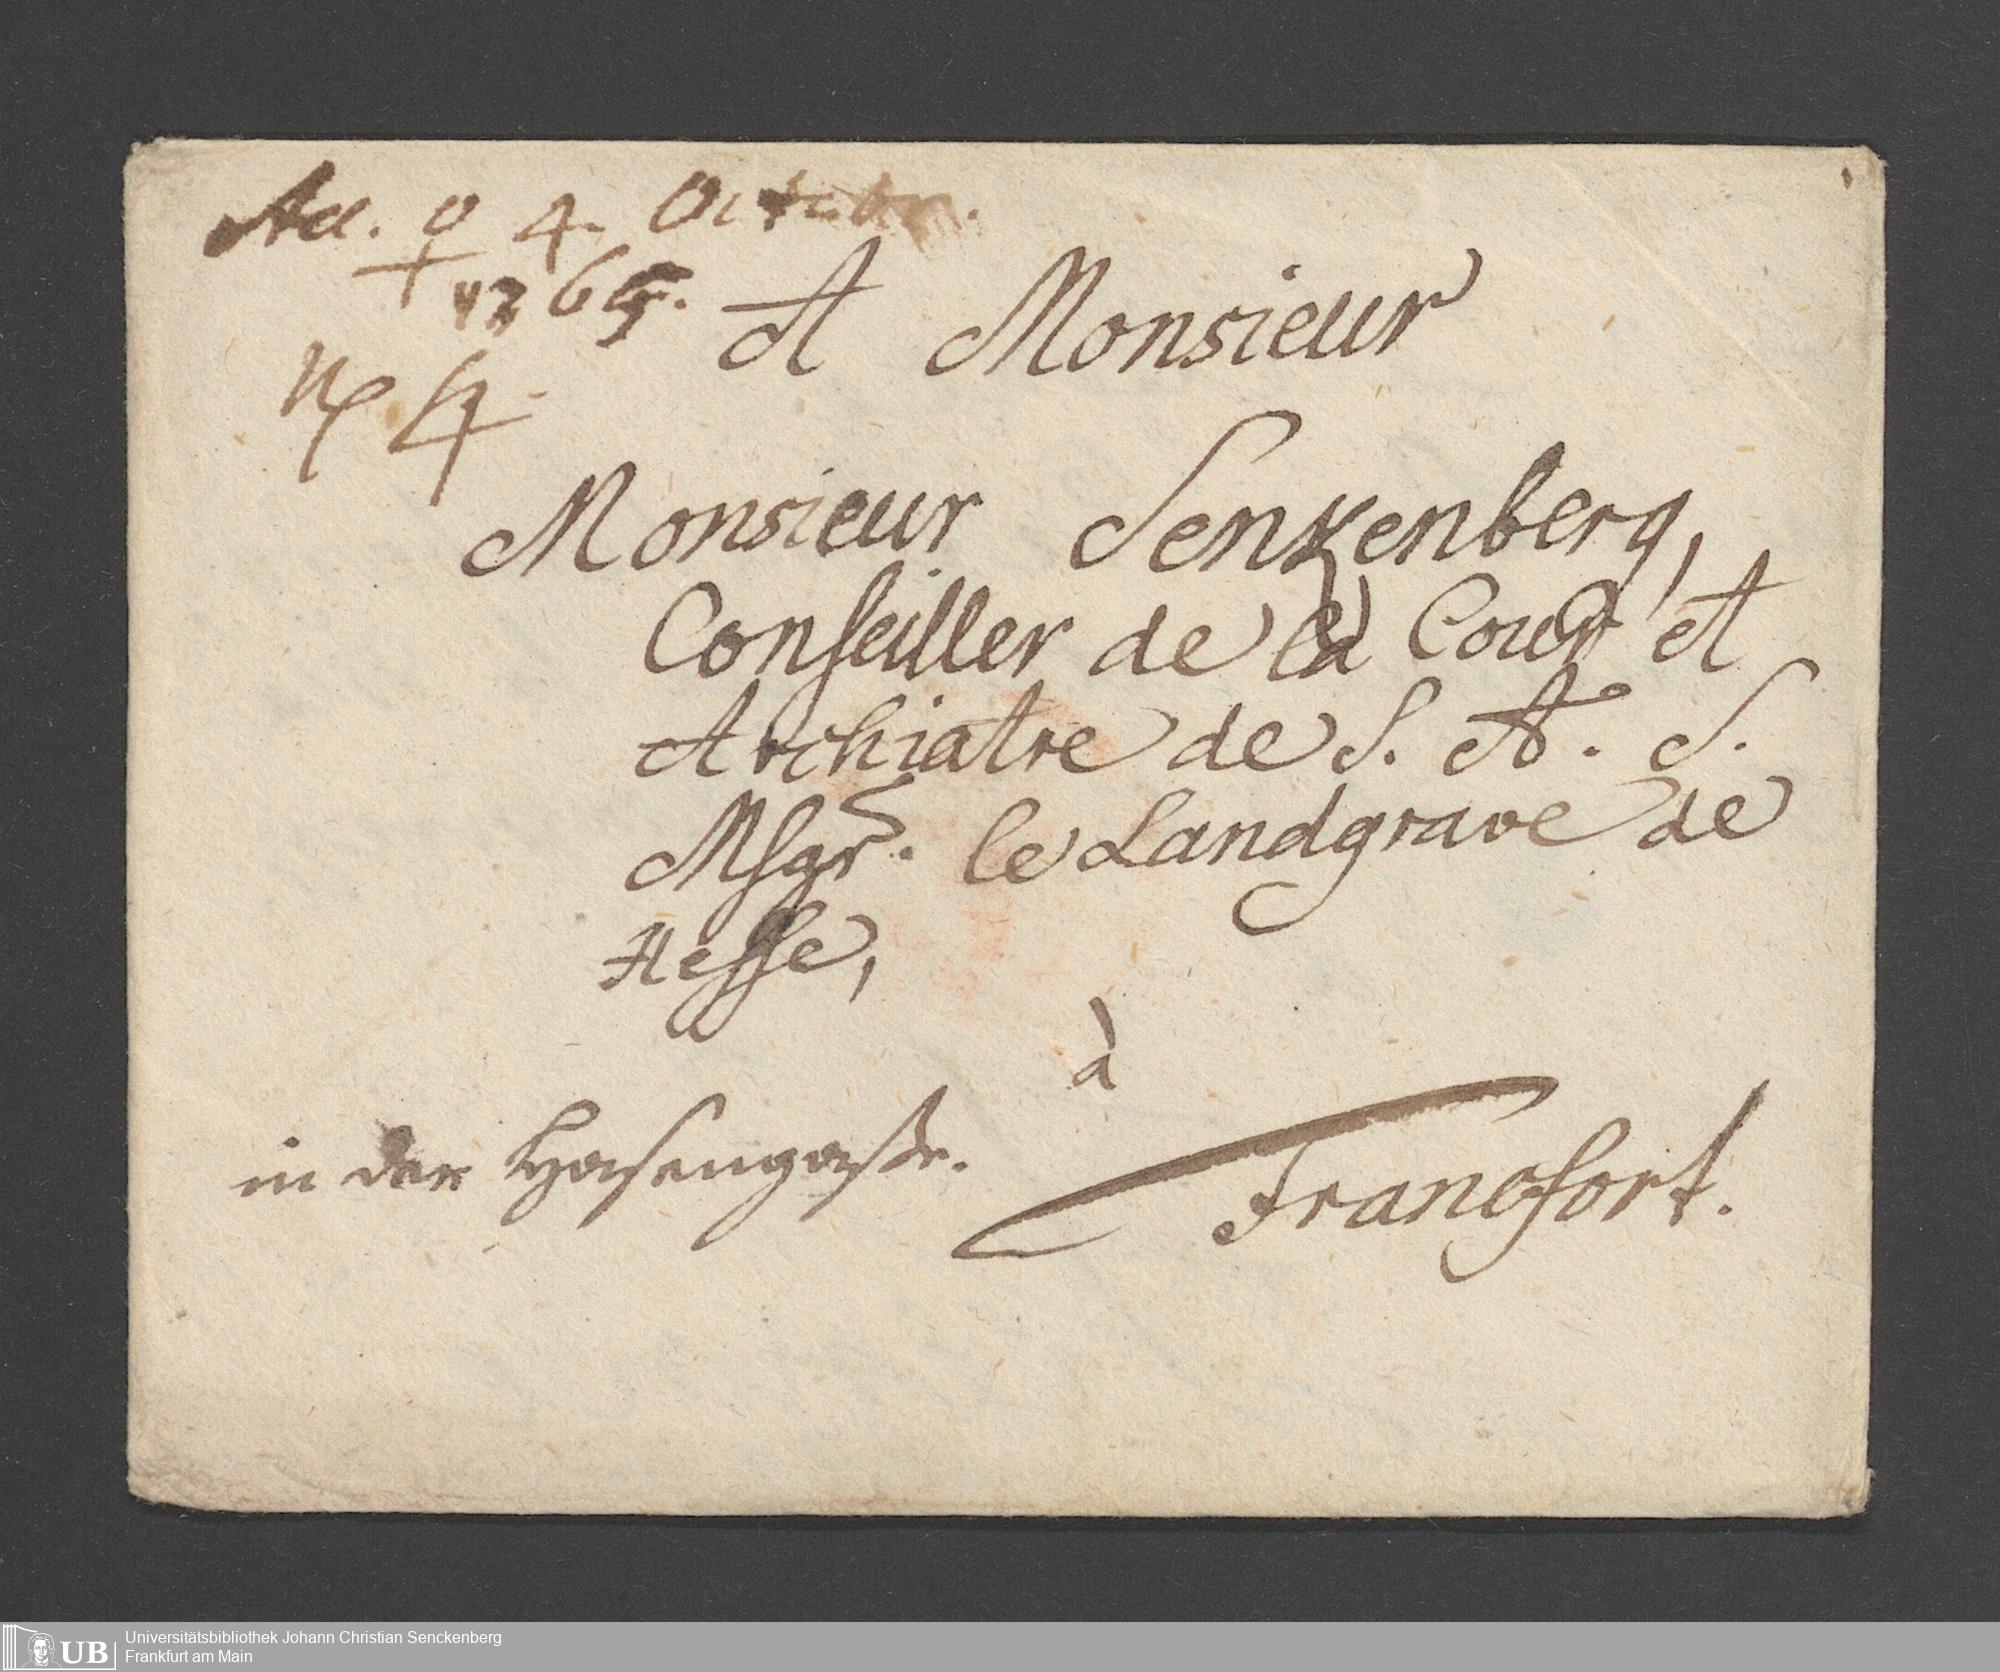 Acc. ♀ 4. Octobr.
1765.
N 4.
A Monsieur
Monsieur Senkenberg,
Conseiller de la Cour et
Archiatre de S. A. S.
Msgr. le Landgrave de
Hesse,
à
in der Hasengaße.
Francfort.
UB
Universitätsbibliothek Johann Christian Senckenberg
Frankfurt am Main